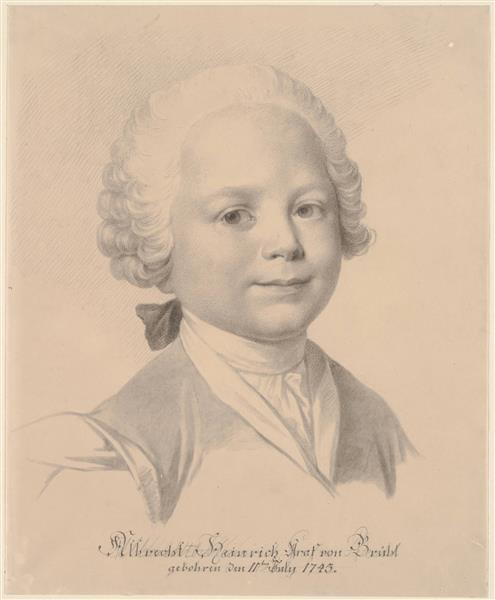 Albrecht Heinrich Graf von Brühl
gebohren den 11ten July 1743.